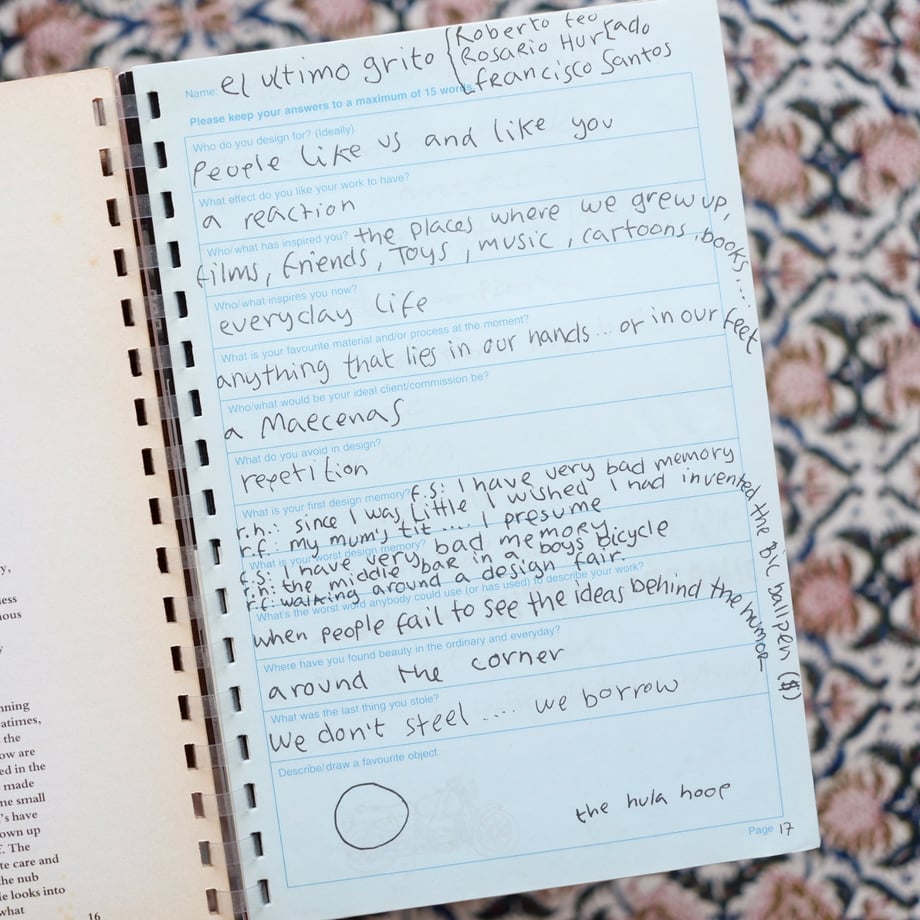 y,
less
nous
y
nning
atimes,
the
ow are
ed in the
made
me small
's have
own up
f. The
te care and
the nub
le looks into
what
16
Name. el ultimo grito { Roberto feo
Rosario Hurtado
francisco Santos
Please keep your answers to a maximum of 15 words.
Who do you design for? (Ideally).
People like us and like you
What effect do you like your work to have?
a reaction
Who/what has inspired you? the places where we grew up,
films, friends, Toys, music, cartoons, books...
Who/what inspires you now?
everyday life
What is your favourite material and/or process at the moment?
anything that lies in our hands... or in our feet
Who/what would be your ideal client/commission be?
a Maecenas
What do you avoid in design?
repetition
What is your first design memory? f.s: I have very bad memory
r.h.: since I was little I wished I had invented the bic ballpen ($)
r.f.: my mum's tit.... I presume
What is your worst design memory?
f.s: I have very bad memory.
r.h: the middle bar in a boys bicycle
r.f: walking around a design fair.
What's the worst word anybody could use (or has used) to describe your work?
when people fail to see the ideas behind the humor
Where have you found beauty in the ordinary and everyday?
around the corner
What was the last thing you stole?
we don't steel .... we borrow
Describe/draw a favourite object.
the hula hoop
Page 17